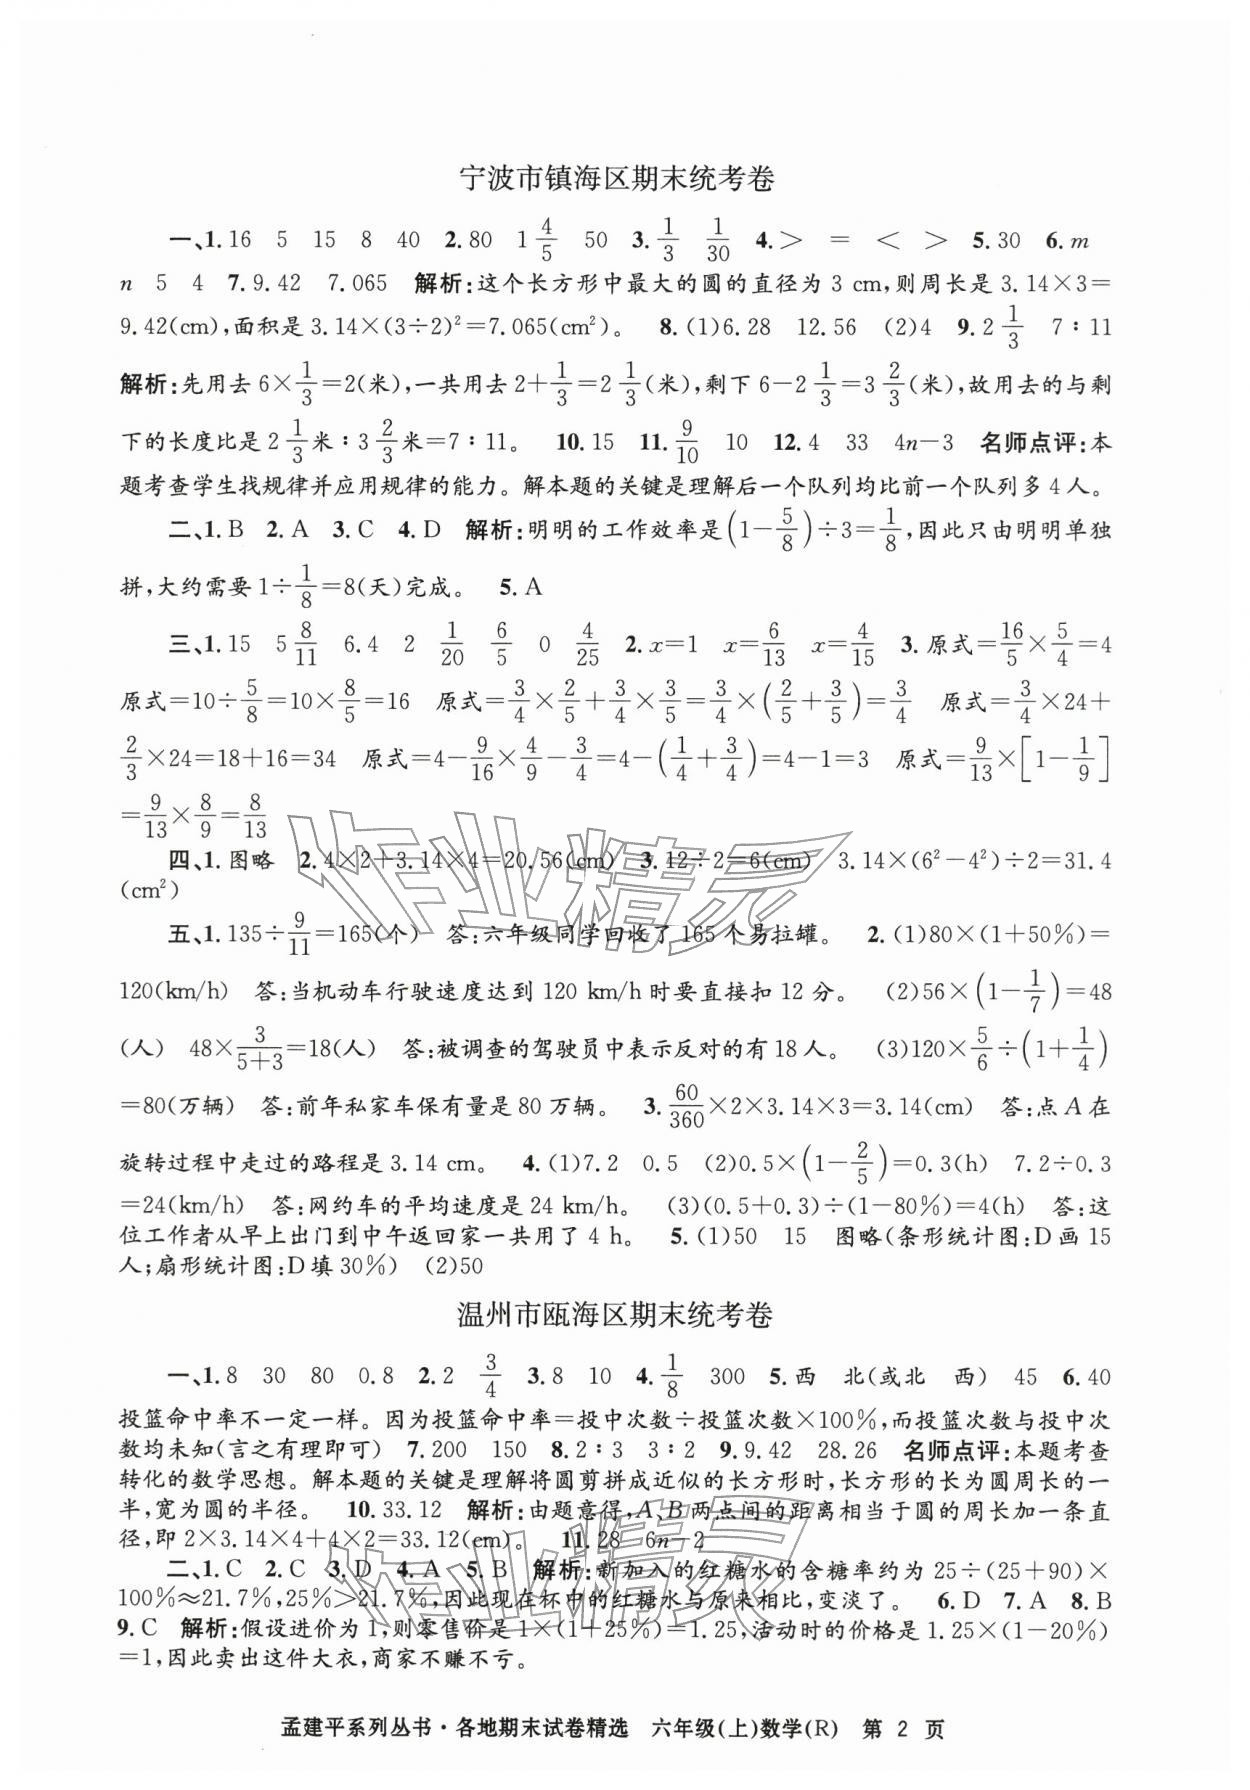 宁波市镇海区期末统考卷
一、1.16 5 15 8 40 2.80 1 4/5 50 3. 1/3 1/30 4.＞ ＝ ＜ ＞ 5.30 6.m
n 5 4 7.9.42 7.065 解析:这个长方形中最大的圆的直径为 3 cm,则周长是 3.14×3=
9.42(cm),面积是 3.14×(3÷2)²=7.065(cm²)。 8.(1)6.28 12.56 (2)4 9.2 1/3 7∶11
解析:先用去 6×1/3=2(米),一共用去 2+1/3=2 1/3(米),剩下 6-2 1/3=3 2/3(米),故用去的与剩
下的长度比是 2 1/3米∶3 2/3米=7∶11。 10.15 11. 9/10 10 12.4 33 4n-3 名师点评:本
题考查学生找规律并应用规律的能力。解本题的关键是理解后一个队列均比前一个队列多 4 人。
二、1.B 2.A 3.C 4.D 解析:明明的工作效率是(1-5/8)÷3=1/8,因此只由明明单独
拼,大约需要 1÷1/8=8(天)完成。 5.A
三、1.15 5 8/11 6.4 2 1/20 6/5 0 4/25 2.x=1 x=6/13 x=4/15 3.原式=16/5×5/4=4
原式=10÷5/8=10×8/5=16 原式=3/4×2/5+3/4×3/5=3/4×(2/5+3/5)=3/4 原式=3/4×24+
2/3×24=18+16=34 原式=4-9/16×4/9-3/4=4-(1/4+3/4)=4-1=3 原式=9/13×[1-1/9]
=9/13×8/9=8/13
四、1.图略 2.4×2+3.14×4=20.56(cm) 3.12÷2=6(cm) 3.14×(6²-4²)÷2=31.4
(cm²)
五、1.135÷9/11=165(个) 答:六年级同学回收了 165 个易拉罐。 2.(1)80×(1+50%)=
120(km/h) 答:当机动车行驶速度达到 120 km/h 时要直接扣 12 分。 (2)56×(1-1/7)=48
(人) 48×3/(5+3)=18(人) 答:被调查的驾驶员中表示反对的有 18 人。 (3)120×5/6÷(1+1/4)
=80(万辆) 答:前年私家车保有量是 80 万辆。 3. 60/360×2×3.14×3=3.14(cm) 答:点 A 在
旋转过程中走过的路程是 3.14 cm。 4.(1)7.2 0.5 (2)0.5×(1-2/5)=0.3(h) 7.2÷0.3
=24(km/h) 答:网约车的平均速度是 24 km/h。 (3)(0.5+0.3)÷(1-80%)=4(h) 答:这
位工作者从早上出门到中午返回家一共用了 4 h。 5.(1)50 15 图略(条形统计图:D 画 15
人;扇形统计图:D 填 30%) (2)50
温州市瓯海区期末统考卷
一、1.8 30 80 0.8 2.2 3/4 3.8 10 4. 1/8 300 5.西 北(或北 西) 45 6.40
投篮命中率不一定一样。因为投篮命中率=投中次数÷投篮次数×100%,而投篮次数与投中次
数均未知(言之有理即可) 7.200 150 8.2∶3 3∶2 9.9.42 28.26 名师点评:本题考查
转化的数学思想。解本题的关键是理解将圆剪拼成近似的长方形时,长方形的长为圆周长的一
半,宽为圆的半径。 10.33.12 解析:由题意得,A、B 两点间的距离相当于圆的周长加一条直
径,即 2×3.14×4+4×2=33.12(cm)。 11.28 6n-2
二、1.C 2.C 3.D 4.A 5.B 解析:新加入的红糖水的含糖率约为 25÷(25+90)×
100%≈21.7%,25%>21.7%,因此现在杯中的红糖水与原来相比,变淡了。 6.D 7.A 8.B
9.C 解析:假设进价为 1,则零售价是 1×(1+25%)=1.25,活动时的价格是 1.25×(1-20%)
=1,因此卖出这件大衣,商家不赚不亏。
孟建平系列丛书·各地期末试卷精选 六年级(上)数学(R) 第 2 页
作业精灵
作业精灵